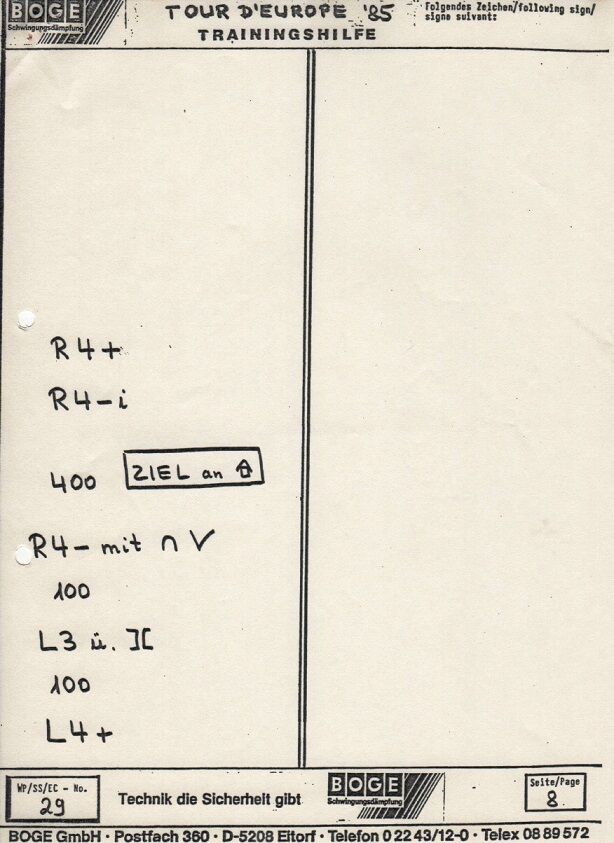 BOGE
Schwingungsdämpfung
TOUR D'EUROPE '85
TRAININGSHILFE
Folgendes Zeichen/following sign/
signe suivant:
R4+
R4-i
400 ZIEL an
R4- mit ∩ V
100
L3 ü. ][
100
L4+
WP/SS/EC - No.
29
Technik die Sicherheit gibt
BOGE
Schwingungsdämpfung
Seite/Page
8
BOGE GmbH · Postfach 360 · D-5208 Eitorf · Telefon 0 22 43/12-0 · Telex 08 89 572